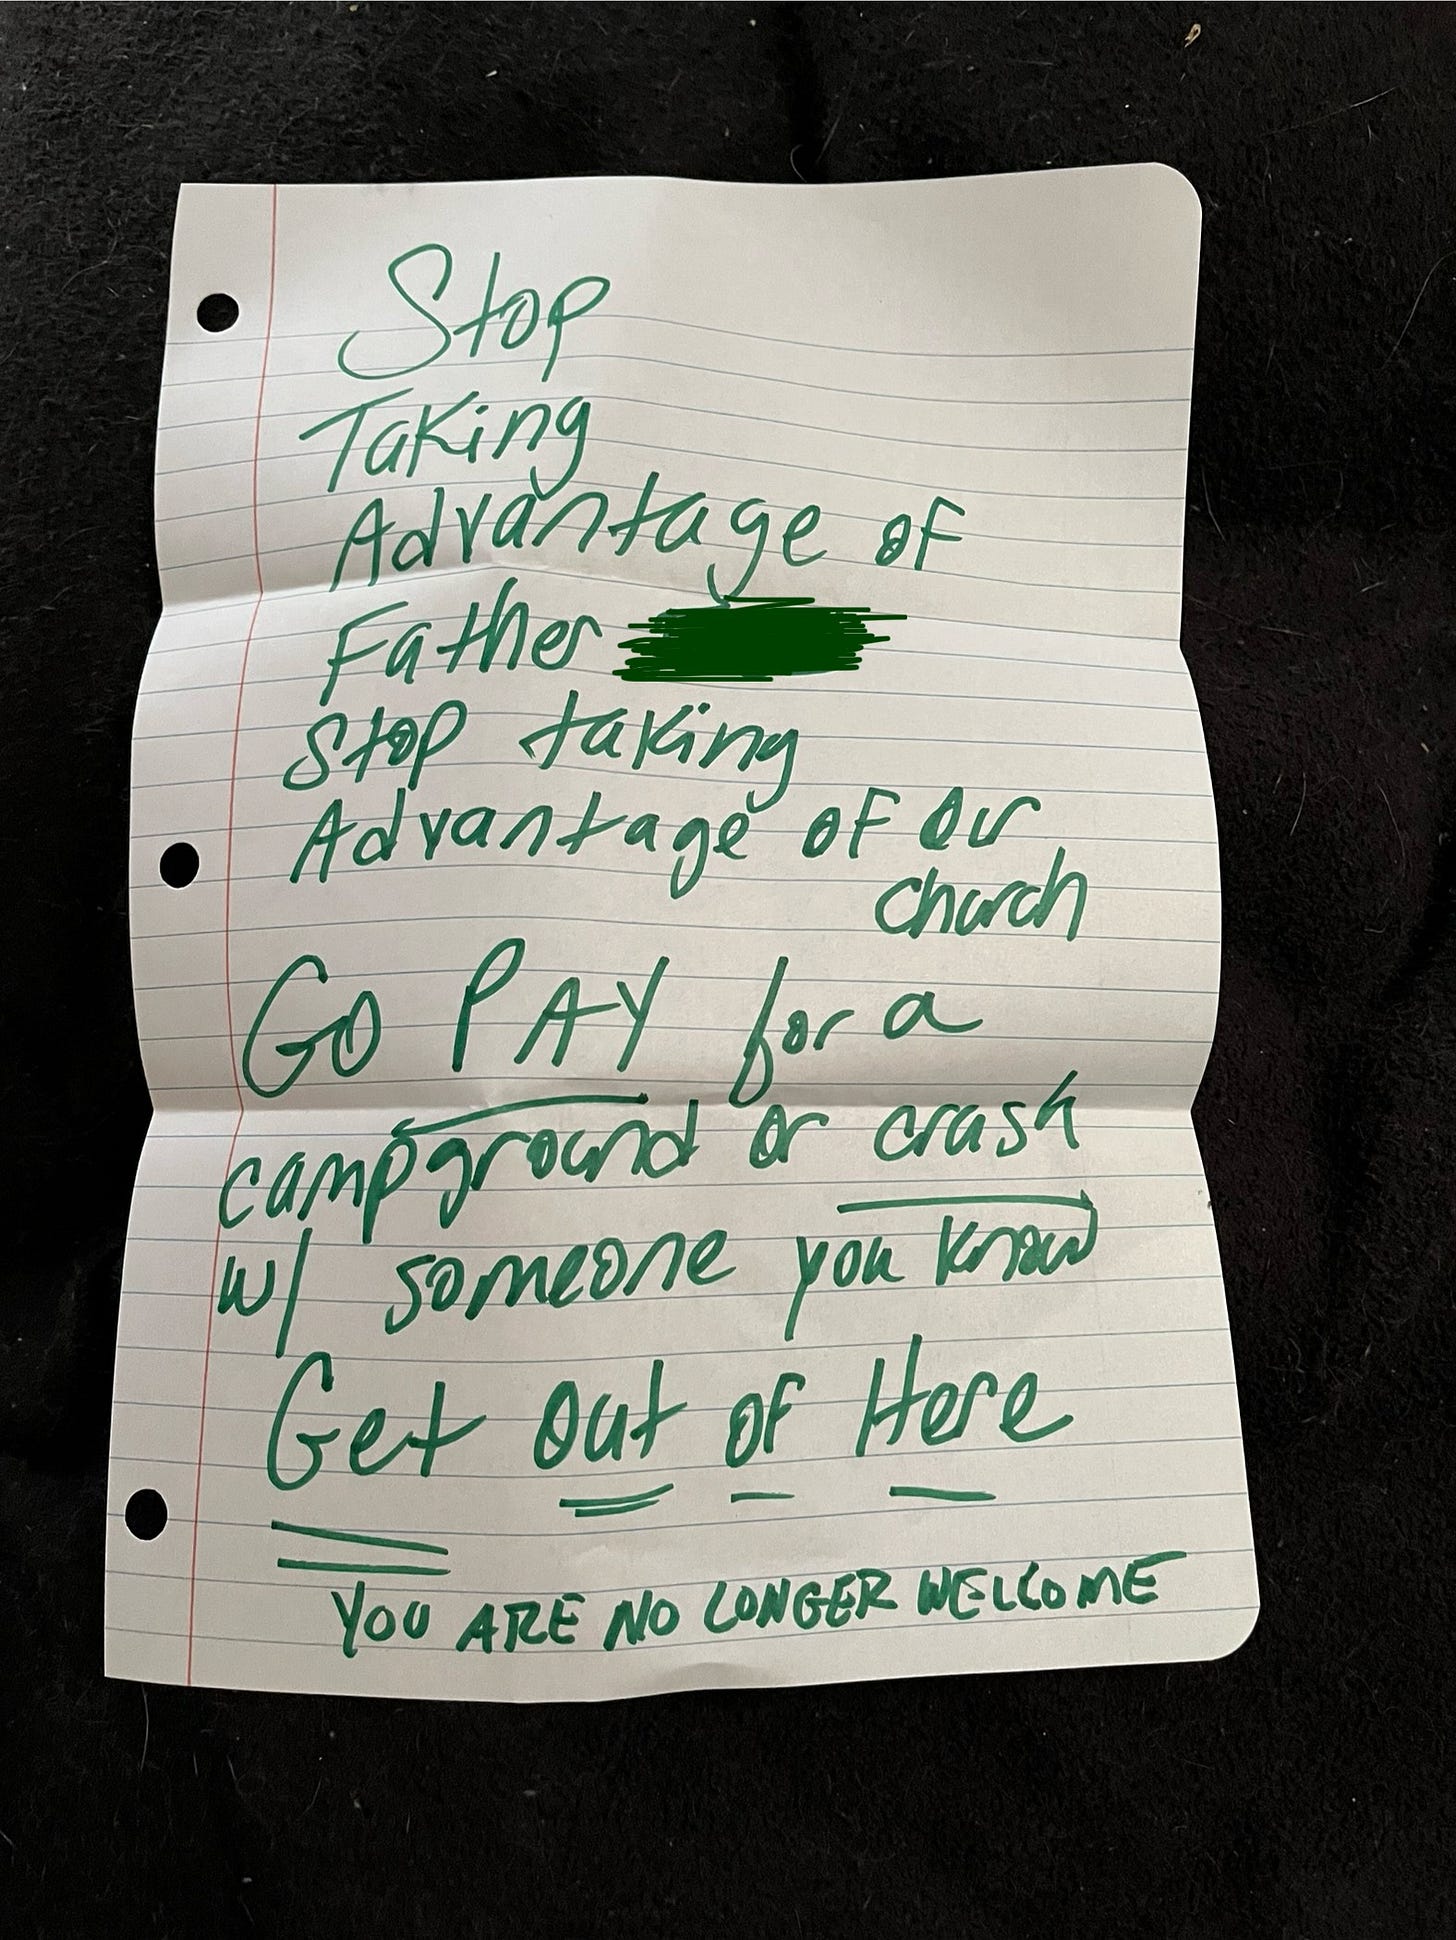 Stop
Taking
Advantage of
Father
Stop taking
Advantage of Our
church
Go PAY for a
campground or crash
w/ someone you know
Get out of Here
YOU ARE NO LONGER WELCOME